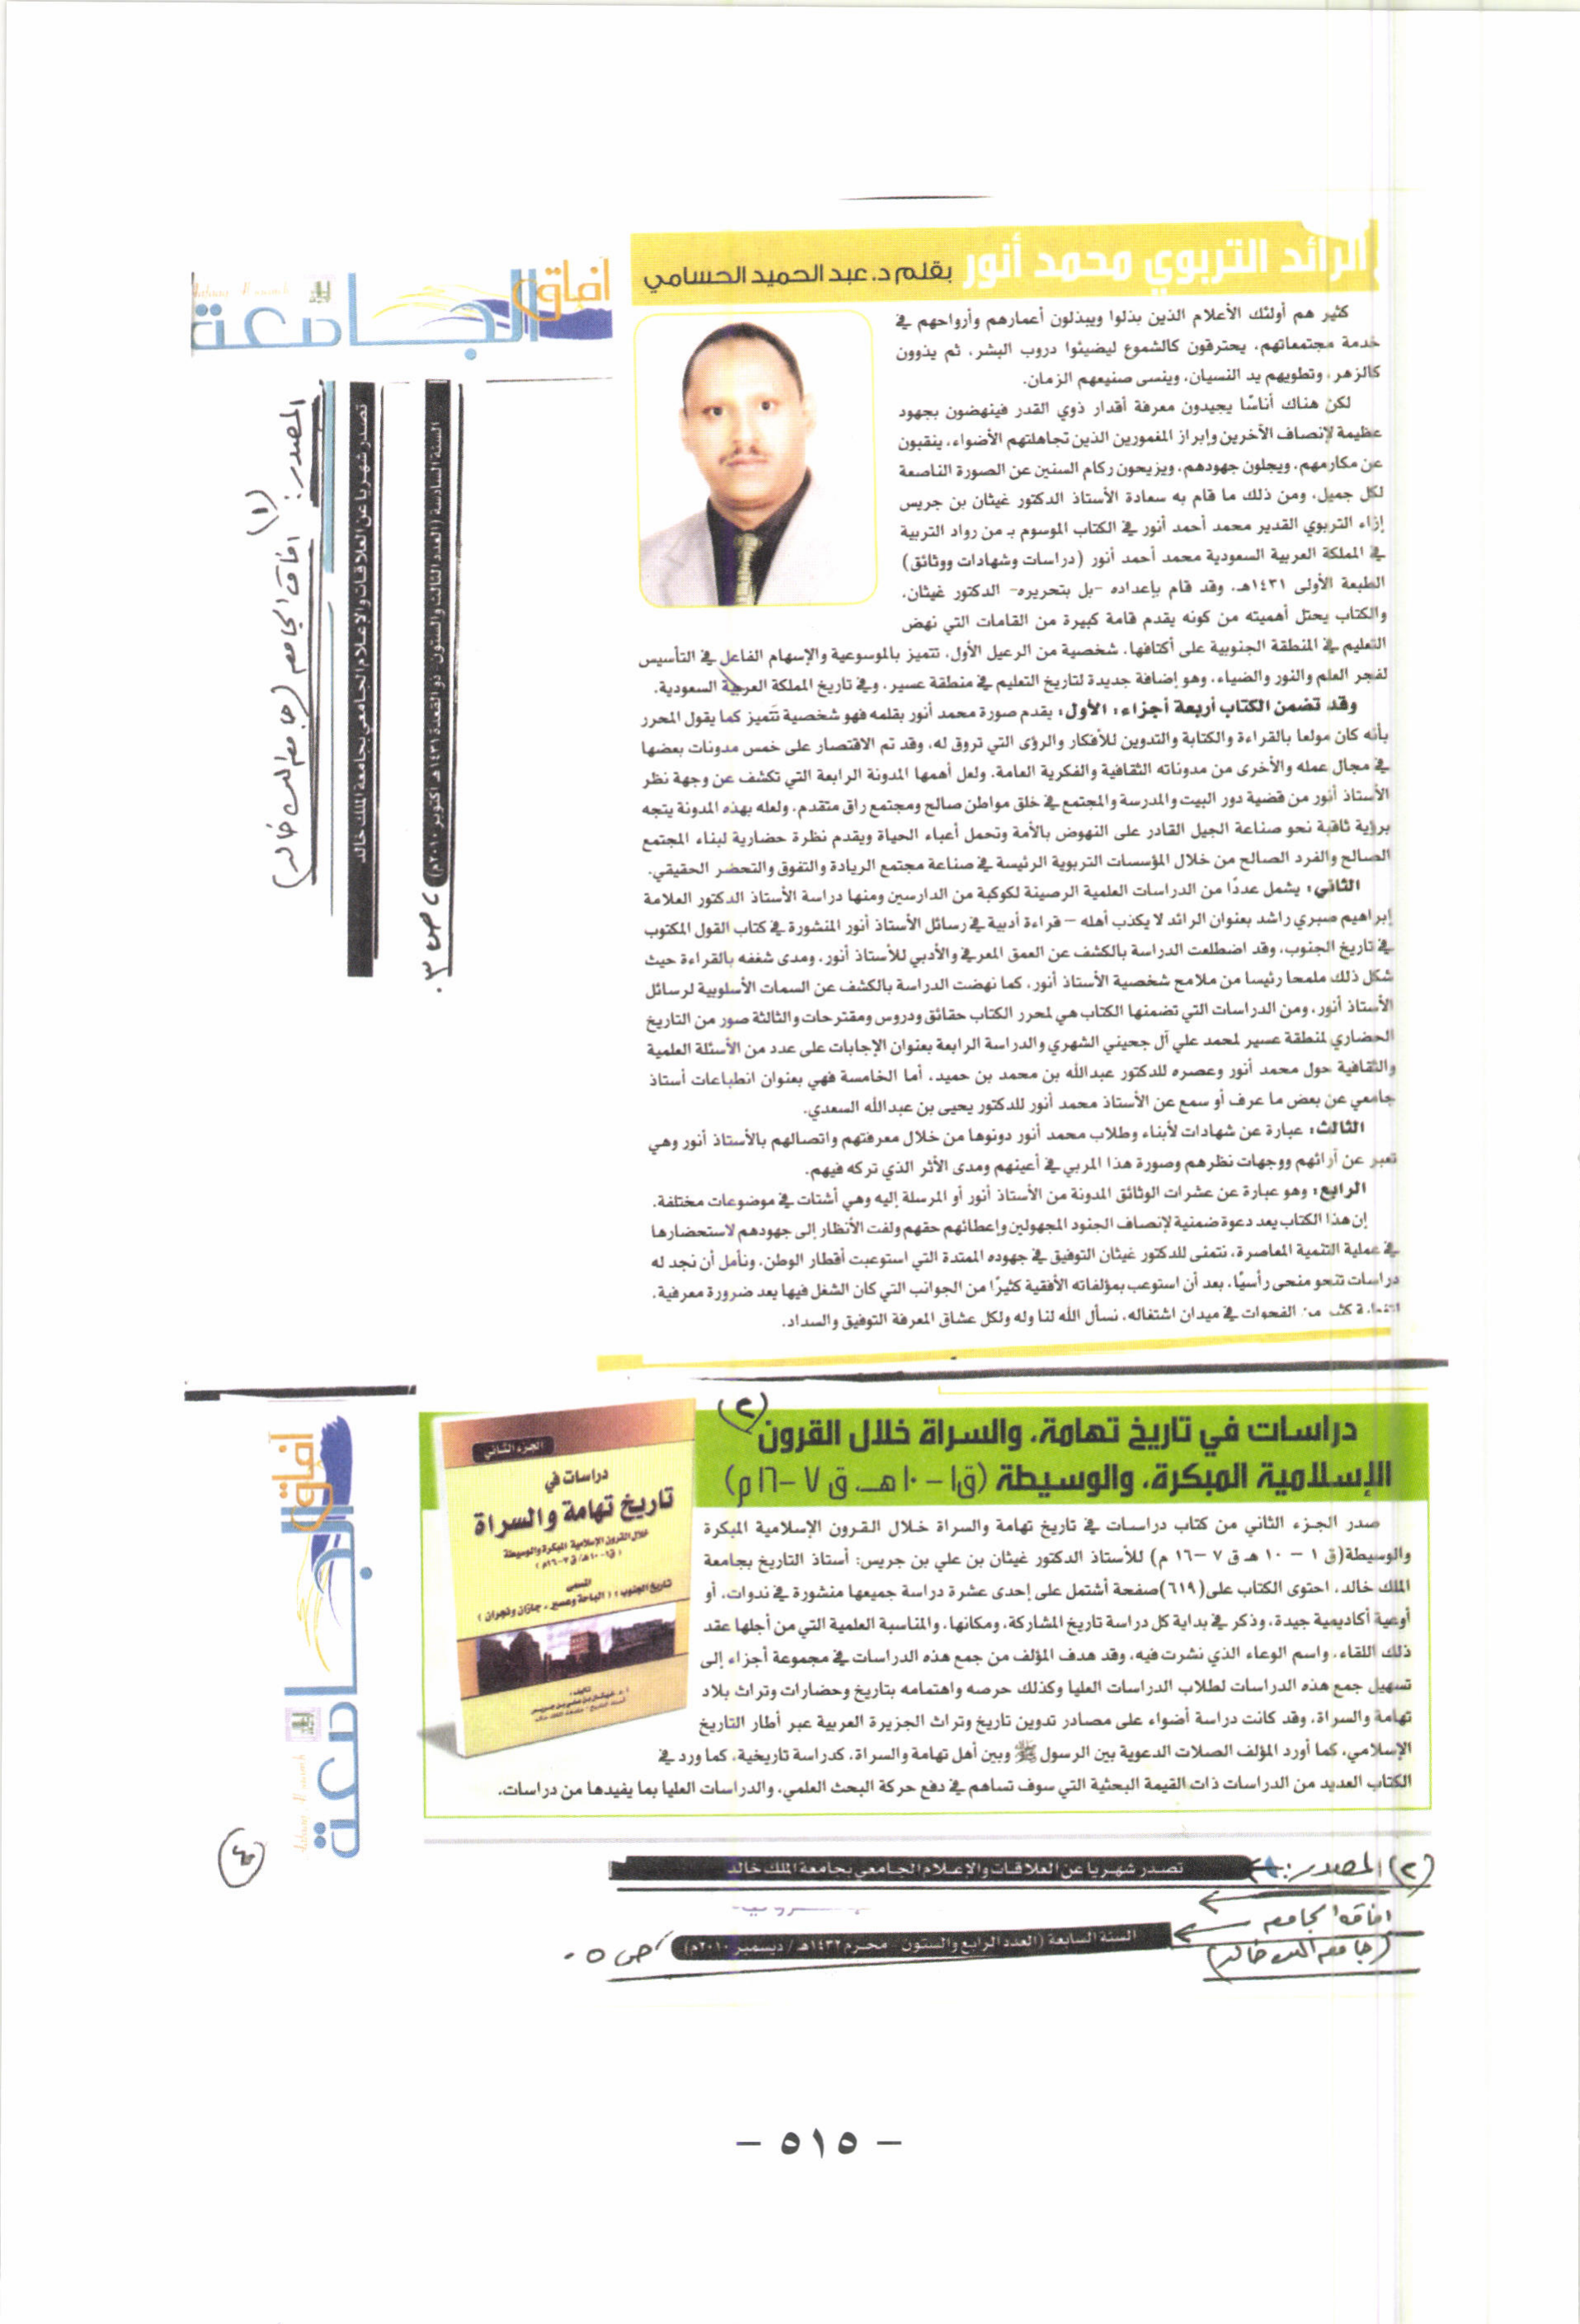 الرائد التربوي محمد أنور بقلم د. عبد الحميد الحسامي
كثير هم أولئك الأعلام الذين بذلوا ويبذلون أعمارهم وأرواحهم في
خدمة مجتمعاتهم، يحترقون كالشموع ليضيئوا دروب البشر، ثم يذوون
كالزهر، وتطويهم يد النسيان، وينسى صنيعهم الزمان.
لكن هناك أناسًا يجيدون معرفة أقدار ذوي القدر فينهضون بجهود
عظيمة لإنصاف الآخرين وإبراز المغمورين الذين تجاهلتهم الأضواء، ينقبون
عن مكارمهم، ويجلون جهودهم، ويزيحون ركام السنين عن الصورة الناصعة
لكل جميل، ومن ذلك ما قام به سعادة الأستاذ الدكتور غيثان بن جريس
إزاء التربوي القدير محمد أحمد أنور في الكتاب الموسوم بـ من رواد التربية
في المملكة العربية السعودية محمد أحمد أنور (دراسات وشهادات ووثائق)
الطبعة الأولى ١٤٣١هـ، وقد قام بإعداده -بل بتحريره- الدكتور غيثان،
والكتاب يحتل أهميته من كونه يقدم قامة كبيرة من القامات التي نهض
التعليم في المنطقة الجنوبية على أكتافها، شخصية من الرعيل الأول، تتميز بالموسوعية والإسهام الفاعل في التأسيس
لفجر العلم والنور والضياء، وهو إضافة جديدة لتاريخ التعليم في منطقة عسير، وفي تاريخ المملكة العربية السعودية.
وقد تضمن الكتاب أربعة أجزاء: الأول: يقدم صورة محمد أنور بقلمه فهو شخصية تتميز كما يقول المحرر
بأنه كان مولعا بالقراءة والكتابة والتدوين للأفكار والرؤى التي تروق له، وقد تم الاقتصار على خمس مدونات بعضها
في مجال عمله والأخرى من مدوناته الثقافية والفكرية العامة، ولعل أهمها المدونة الرابعة التي تكشف عن وجهة نظر
الأستاذ أنور من قضية دور البيت والمدرسة والمجتمع في خلق مواطن صالح ومجتمع راق متقدم، ولعله بهذه المدونة يتجه
برؤية ثاقبة نحو صناعة الجيل القادر على النهوض بالأمة وتحمل أعباء الحياة ويقدم نظرة حضارية لبناء المجتمع
الصالح والفرد الصالح من خلال المؤسسات التربوية الرئيسة في صناعة مجتمع الريادة والتفوق والتحضر الحقيقي.
الثاني: يشمل عددًا من الدراسات العلمية الرصينة لكوكبة من الدارسين ومنها دراسة الأستاذ الدكتور العلامة
إبراهيم صبري راشد بعنوان الرائد لا يكذب أهله – قراءة أدبية في رسائل الأستاذ أنور المنشورة في كتاب القول المكتوب
في تاريخ الجنوب، وقد اضطلعت الدراسة بالكشف عن العمق المعرفي والأدبي للأستاذ أنور، ومدى شغفه بالقراءة حيث
شكل ذلك ملمحا رئيسا من ملامح شخصية الأستاذ أنور، كما نهضت الدراسة بالكشف عن السمات الأسلوبية لرسائل
الأستاذ أنور، ومن الدراسات التي تضمنها الكتاب هي لمحرر الكتاب حقائق ودروس ومقترحات والثالثة صور من التاريخ
الحضاري لمنطقة عسير لمحمد علي آل جحيني الشهري والدراسة الرابعة بعنوان الإجابات على عدد من الأسئلة العلمية
والثقافية حول محمد أنور وعصره للدكتور عبدالله بن محمد بن حميد، أما الخامسة فهي بعنوان انطباعات أستاذ
جامعي عن بعض ما عرف أو سمع عن الأستاذ محمد أنور للدكتور يحيى بن عبدالله السعدي.
الثالث: عبارة عن شهادات لأبناء وطلاب محمد أنور دونوها من خلال معرفتهم واتصالهم بالأستاذ أنور وهي
تعبر عن آرائهم ووجهات نظرهم وصورة هذا المربي في أعينهم ومدى الأثر الذي تركه فيهم.
الرابع: وهو عبارة عن عشرات الوثائق المدونة من الأستاذ أنور أو المرسلة إليه وهي أشتات في موضوعات مختلفة.
إن هذا الكتاب يعد دعوة ضمنية لإنصاف الجنود المجهولين وإعطائهم حقهم ولفت الأنظار إلى جهودهم لاستحضارها
في عملية التنمية المعاصرة، نتمنى للدكتور غيثان التوفيق في جهوده الممتدة التي استوعبت أقطار الوطن، ونأمل أن نجد له
دراسات تنحو منحى رأسيًا، بعد أن استوعب بمؤلفاته الأفقية كثيرًا من الجوانب التي كان الشغل فيها يعد ضرورة معرفية،
من الفجوات في ميدان اشتغاله، نسأل الله لنا وله ولكل عشاق المعرفة التوفيق والسداد.
آفاق الجامعة
المصدر:
(١) افاق الجامعه (جامعه الملك خالد)
تصدر شهريا عن العلاقات والإعلام الجامعي بجامعة الملك خالد
السنة السادسة (العدد الثالث والستون - ذو القعدة ١٤٣١هـ أكتوبر ٢٠١٠م) ص ٣.
(٢)
دراسات في تاريخ تهامة، والسراة خلال القرون
الإسلامية المبكرة، والوسيطة (ق١ – ١٠ هـ، ق ٧ – ١٦م)
صدر الجزء الثاني من كتاب دراسات في تاريخ تهامة والسراة خلال القرون الإسلامية المبكرة
والوسيطة(ق ١ – ١٠ هـ ق ٧ –١٦ م) للأستاذ الدكتور غيثان بن علي بن جريس: أستاذ التاريخ بجامعة
الملك خالد، احتوى الكتاب على(٦١٩)صفحة أشتمل على إحدى عشرة دراسة جميعها منشورة في ندوات، أو
أوعية أكاديمية جيدة، وذكر في بداية كل دراسة تاريخ المشاركة، ومكانها، والمناسبة العلمية التي من أجلها عقد
ذلك اللقاء، واسم الوعاء الذي نشرت فيه، وقد هدف المؤلف من جمع هذه الدراسات في مجموعة أجزاء إلى
تسهيل جمع هذه الدراسات لطلاب الدراسات العليا وكذلك حرصه واهتمامه بتاريخ وحضارات وتراث بلاد
تهامة والسراة، وقد كانت دراسة أضواء على مصادر تدوين تاريخ وتراث الجزيرة العربية عبر أطار التاريخ
الإسلامي، كما أورد المؤلف الصلات الدعوية بين الرسول ﷺ وبين أهل تهامة والسراة، كدراسة تاريخية، كما ورد في
الكتاب العديد من الدراسات ذات القيمة البحثية التي سوف تساهم في دفع حركة البحث العلمي، والدراسات العليا بما يفيدها من دراسات.
الجزء الثاني
دراسات في
تاريخ تهامة والسراة
خلال القرون الإسلامية المبكرة والوسيطة
(ق١-١٠هـ/ ق٧-١٦م)
المسمى
تاريخ الجنوب: (الباحة وعسير، جازان ونجران)
تأليف:
أ.د. غيثان بن علي بن جريس
أستاذ التاريخ - جامعة الملك خالد
آفاق الجامعة
٤
(٢) المصدر: تصدر شهريا عن العلاقات والإعلام الجامعي بجامعة الملك خالد
افاق الجامعه
(جامعه الملك خالد) السنة السابعة (العدد الرابع والستون - محرم ١٤٣٢هـ / ديسمبر ٢٠١٠م) ص ٥.
– ٥١٥ –